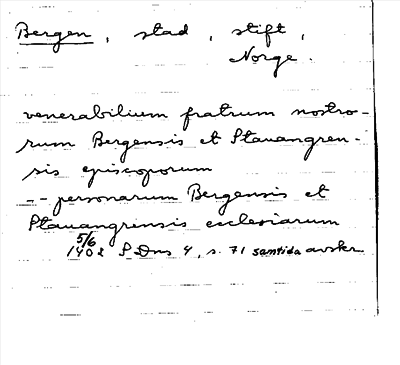 Bergen, stad, stift,
Norge.
venerabilium fratrum nostro-
rum Bergensis et Stauangren-
sis episcoporum
-- personarum Bergensis et
Stauangrensis ecclesiarum
5/6
1402 SDns 4, s. 71 samtida avskr.